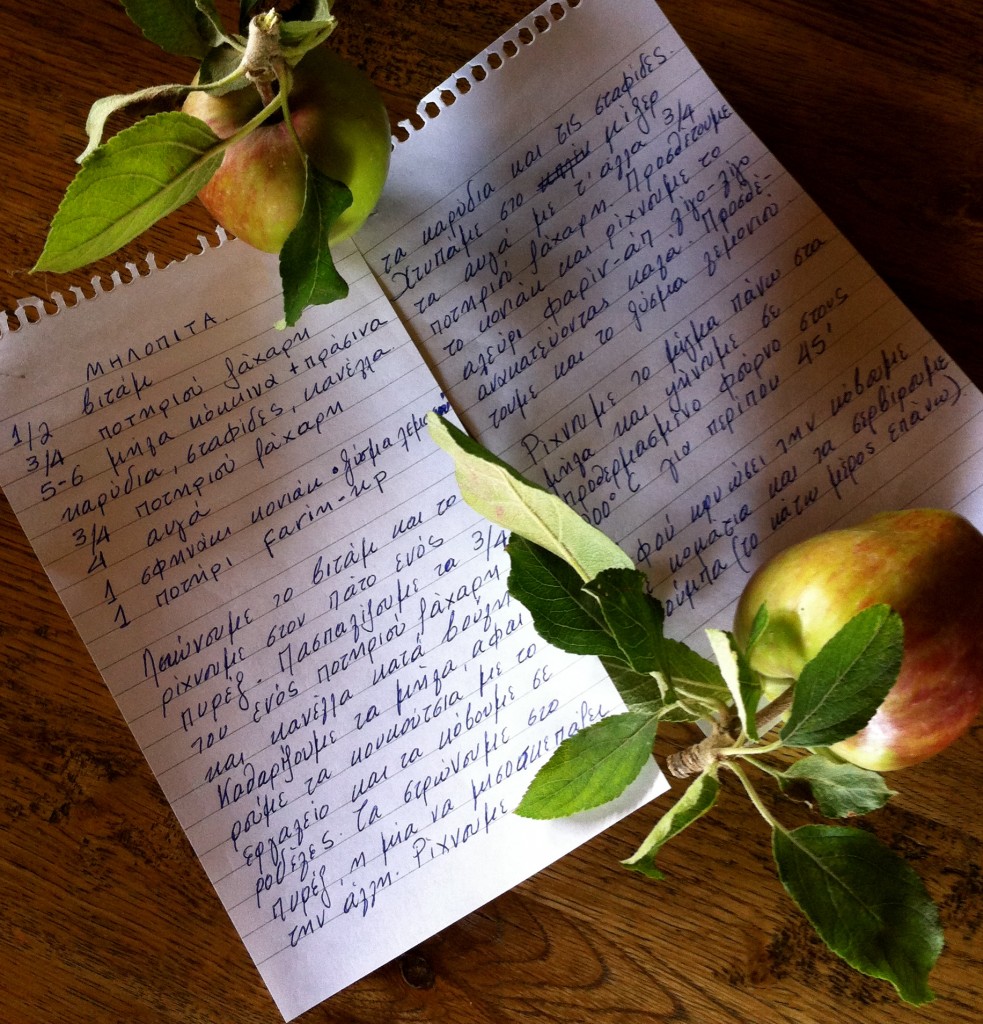 ΜΗΛΟΠΙΤΑ.
1/2 βιτάμ
3/4 ποτηριού ζάχαρη
5-6 μήλα κόκκινα + πράσινα
καρύδια, σταφίδες, κανέλλα.
3/4 ποτηριού ζάχαρη
4 αυγά
1 σφηνάκι κονιάκ • ξύσμα λεμονιού
1 ποτήρι farin-ap
Λειώνουμε το βιτάμ και το
ρίχνουμε στον πάτο ενός
πυρέξ. Πασπαλίζουμε τα 3/4
του ενός ποτηριού ζάχαρη
και κανέλλα κατά βούληση
Καθαρίζουμε τα μήλα, αφαι
ρούμε τα κουκούτσια με το
εργαλείο και τα κόβουμε σε
ροδέλες. Τα στρώνουμε στο
πυρέξ, η μία να μισοσκεπάζει
την άλλη. Ρίχνουμε
τα καρύδια και τις σταφίδες.
Χτυπάμε στο μίξερ
τα αυγά με τ' άλλα 3/4
ποτηριού ζάχαρη. Προσθέτουμε
το κονιάκ και ρίχνουμε το
αλεύρι φαρίν-απ λίγο-λίγο
ανακατεύοντας καλά. Προσθέ-
τουμε και το ξύσμα λεμονιού.
Ρίχνουμε το μίγμα πάνω στα
μήλα και ψήνουμε σε
προθερμασμένο φούρνο στους
200°C για περίπου 45'
αφού κρυώσει την κόβουμε
κομμάτια και τα σερβίρουμε
(το κάτω μέρος επάνω).